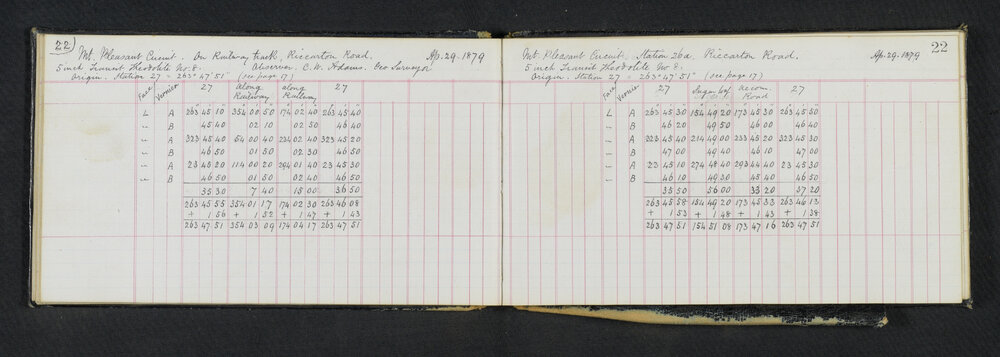 22)
Mt. Pleasant Circuit. On Railway track, Riccarton Road. Ap. 29. 1879
5 inch Transit Theodolite No. 8. Observer C. W. Adams. Geo Surveyor
Origin. Station 27 = 263° 47' 51" (see page 17)
Face Vernier 27 along Railway along Railway 27
L A 263 45 10 354 00 50 174 02 40 263 45 40
" B 45 40 02 10 02 50 46 40
" A 323 45 40 54 00 40 234 02 40 323 45 20
" B 46 50 01 50 02 30 46 50
" A 23 45 20 114 00 20 294 01 40 23 45 30
" B 46 50 01 50 02 40 46 50
35 30 7 40 15 00 36 50
263 45 55 354 01 17 174 02 30 263 46 08
+ 1 56 + 1 52 + 1 47 + 1 43
263 47 51 354 03 09 174 04 17 263 47 51
22
Mt. Pleasant Circuit. Station 26a. Riccarton Road. Ap. 29. 1879
5 inch Transit Theodolite No. 8.
Origin. Station 27 = 263° 47' 51" (see page 17)
Face Vernier 27 Sugar loaf accom. Road 27
L A 263 45 30 154 49 20 173 45 30 263 45 50
" B 46 20 49 50 46 00 46 40
" A 323 45 40 214 49 00 233 45 20 323 45 30
" B 47 00 49 40 46 10 47 00
" A 23 45 10 274 48 40 293 44 40 23 45 30
" B 46 10 49 30 45 40 46 50
35 50 56 00 33 20 37 20
263 45 58 154 49 20 173 45 33 263 46 13
+ 1 53 + 1 48 + 1 43 + 1 38
263 47 51 154 51 08 173 47 16 263 47 51